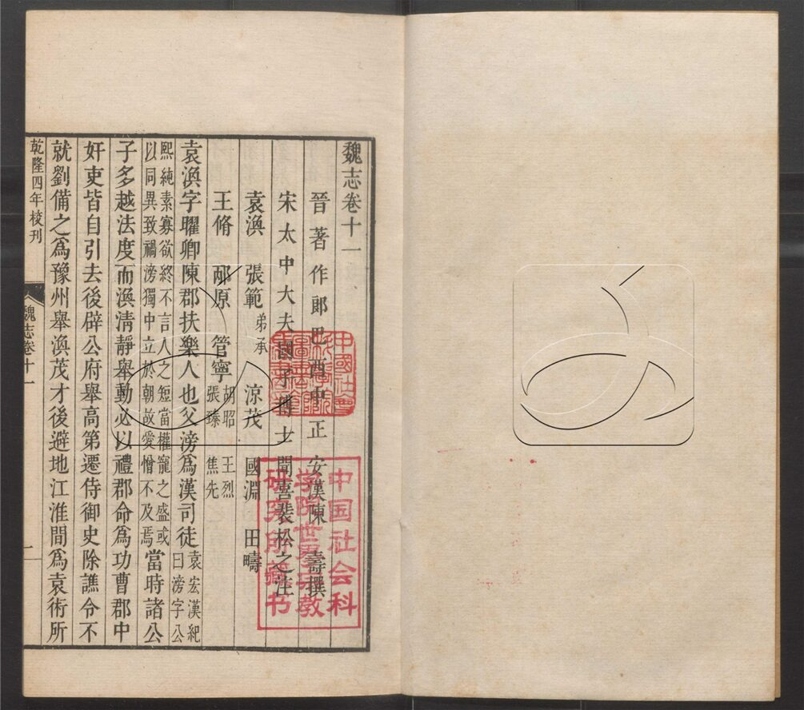 魏志卷十一
晉著作郎巴西中正安漢陳壽撰
宋太中大夫國子博士聞喜裴松之注
袁渙 張範 弟承 涼茂 國淵 田疇
王脩 邴原 管寧 胡昭 王烈 張臶 焦先
袁渙字曜卿陳郡扶樂人也父滂為漢司徒 袁宏漢紀曰滂字公
熙純素寡欲終不言人之短當權寵之盛或以同異致禍滂獨中立於朝故愛憎不及焉 當時諸公
子多越法度而渙清靜舉動必以禮郡命為功曹郡中
奸吏皆自引去後辟公府舉高第遷侍御史除譙令不
就劉備之為豫州舉渙茂才後避地江淮間為袁術所
乾隆四年校刊
魏志卷十一
一
中国社会科
学院世界宗教
研究所藏书